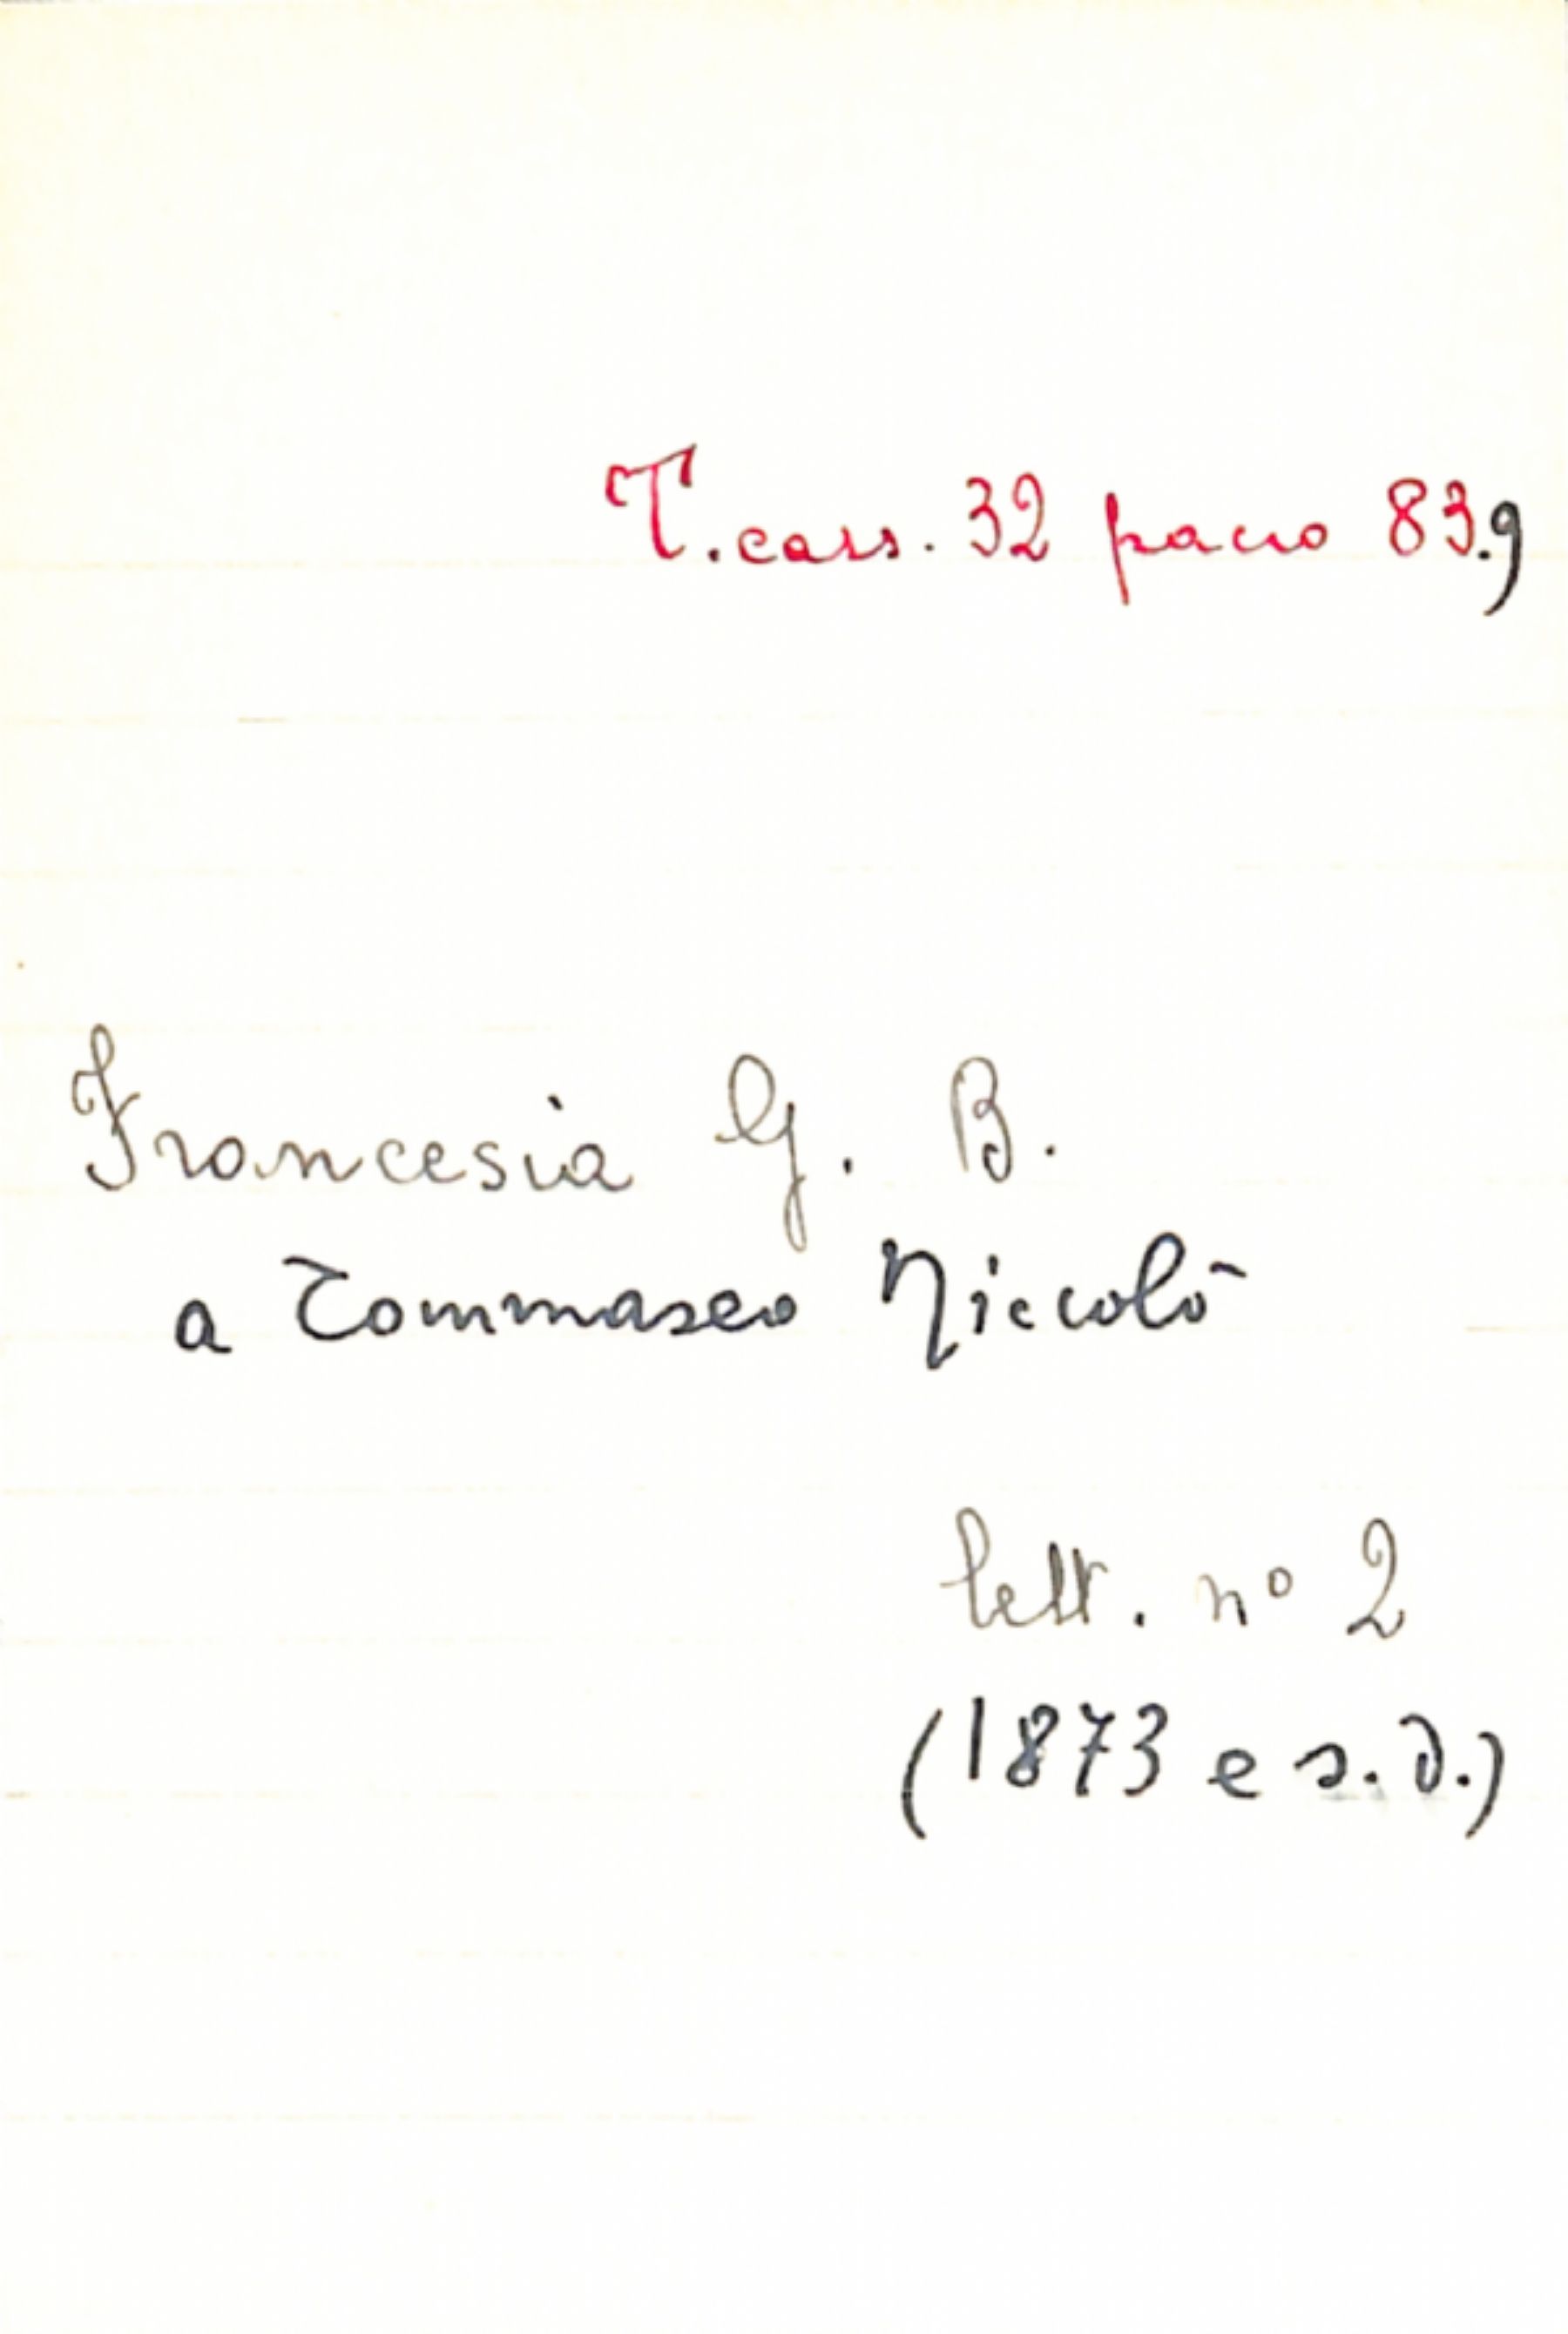 T. cass. 32 pacco 83.9
Francesia G. B.
a Tommaseo Niccolò
lett. nº 2
(1873 e s.d.)